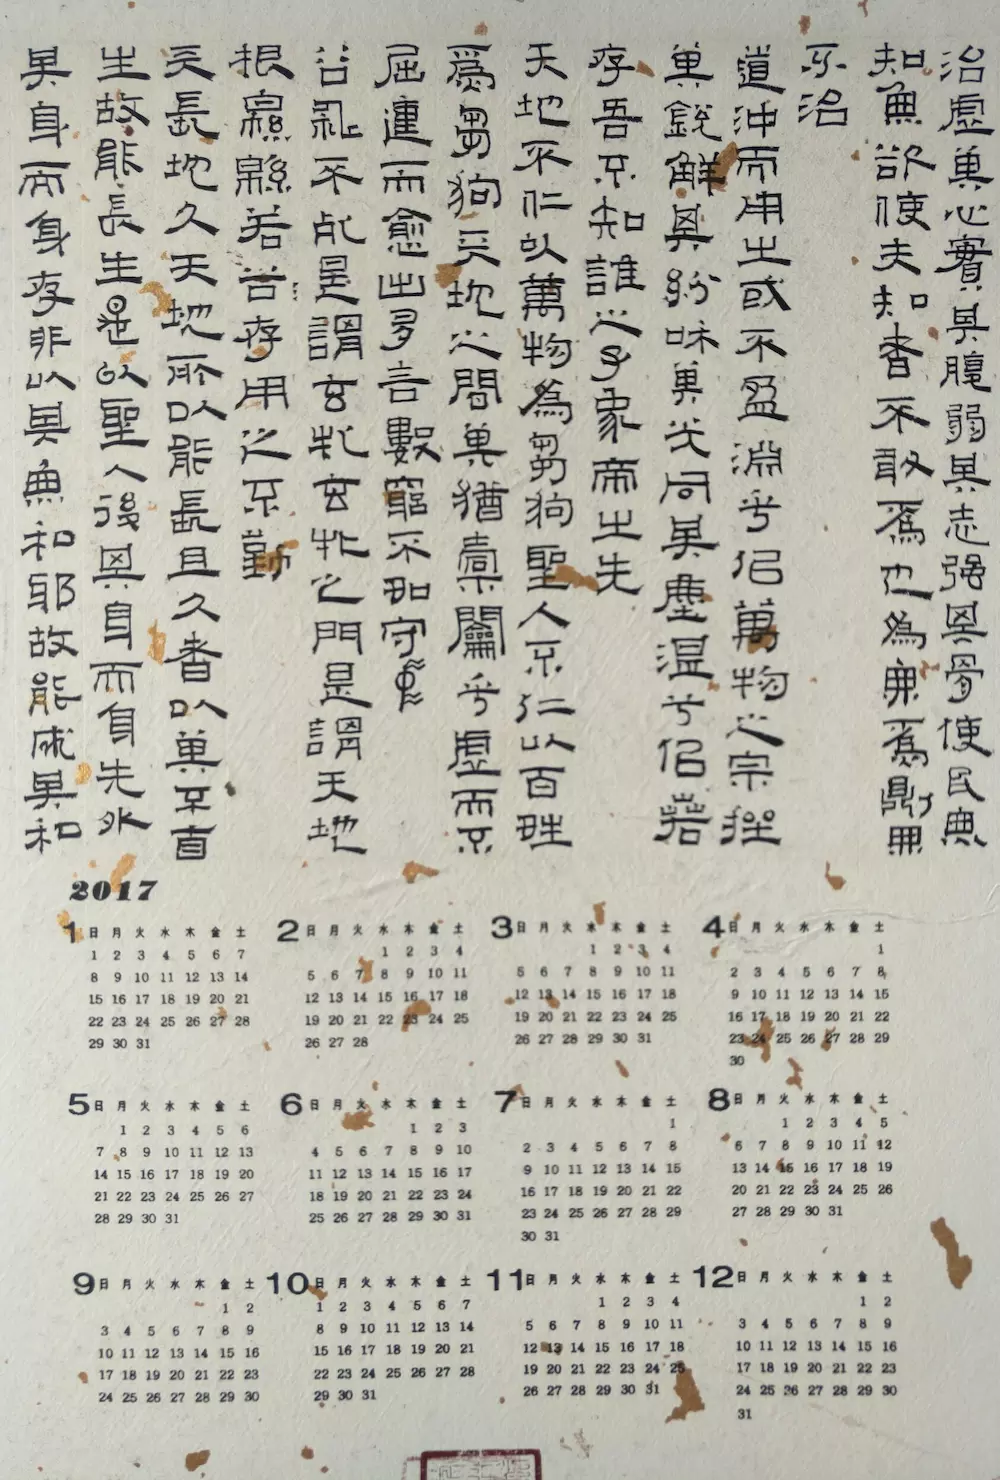 治虛其心實其腹弱其志强其骨使民典
知無欲使夫知者不敢爲也為無爲則無
不治
道沖而用之或不盈淵兮佀萬物之宗挫
其銳解其紛咊其光同其塵湛兮佀若
存吾不知誰之子象帝之先
天地不仁以萬物為芻狗聖人不仁以百姓
爲芻狗天地之間其猶橐籥乎虛而不
屈運而愈出多言數窮不如守中
谷神不死是謂玄牝玄牝之門是謂天地
根緜緜若若存用之不勤
天長地久天地所以能長且久者以其不自
生故能長生是以聖人後其身而身先外
其身而身存非以其無私耶故能成其私
2017
1 日 月 火 水 木 金 土
1 2 3 4 5 6 7
8 9 10 11 12 13 14
15 16 17 18 19 20 21
22 23 24 25 26 27 28
29 30 31
2 日 月 火 水 木 金 土
1 2 3 4
5 6 7 8 9 10 11
12 13 14 15 16 17 18
19 20 21 22 23 24 25
26 27 28
3 日 月 火 水 木 金 土
1 2 3 4
5 6 7 8 9 10 11
12 13 14 15 16 17 18
19 20 21 22 23 24 25
26 27 28 29 30 31
4 日 月 火 水 木 金 土
1
2 3 4 5 6 7 8
9 10 11 12 13 14 15
16 17 18 19 20 21 22
23 24 25 26 27 28 29
30
5 日 月 火 水 木 金 土
1 2 3 4 5 6
7 8 9 10 11 12 13
14 15 16 17 18 19 20
21 22 23 24 25 26 27
28 29 30 31
6 日 月 火 水 木 金 土
1 2 3
4 5 6 7 8 9 10
11 12 13 14 15 16 17
18 19 20 21 22 23 24
25 26 27 28 29 30 31
7 日 月 火 水 木 金 土
1
2 3 4 5 6 7 8
9 10 11 12 13 14 15
16 17 18 19 20 21 22
23 24 25 26 27 28 29
30 31
8 日 月 火 水 木 金 土
1 2 3 4 5
6 7 8 9 10 11 12
13 14 15 16 17 18 19
20 21 22 23 24 25 26
27 28 29 30 31
9 日 月 火 水 木 金 土
1 2
3 4 5 6 7 8 9
10 11 12 13 14 15 16
17 18 19 20 21 22 23
24 25 26 27 28 29 30
10 日 月 火 水 木 金 土
1 2 3 4 5 6 7
8 9 10 11 12 13 14
15 16 17 18 19 20 21
22 23 24 25 26 27 28
29 30 31
11 日 月 火 水 木 金 土
1 2 3 4
5 6 7 8 9 10 11
12 13 14 15 16 17 18
19 20 21 22 23 24 25
26 27 28 29 30 31
12 日 月 火 水 木 金 土
1 2
3 4 5 6 7 8 9
10 11 12 13 14 15 16
17 18 19 20 21 22 23
24 25 26 27 28 29 30
31